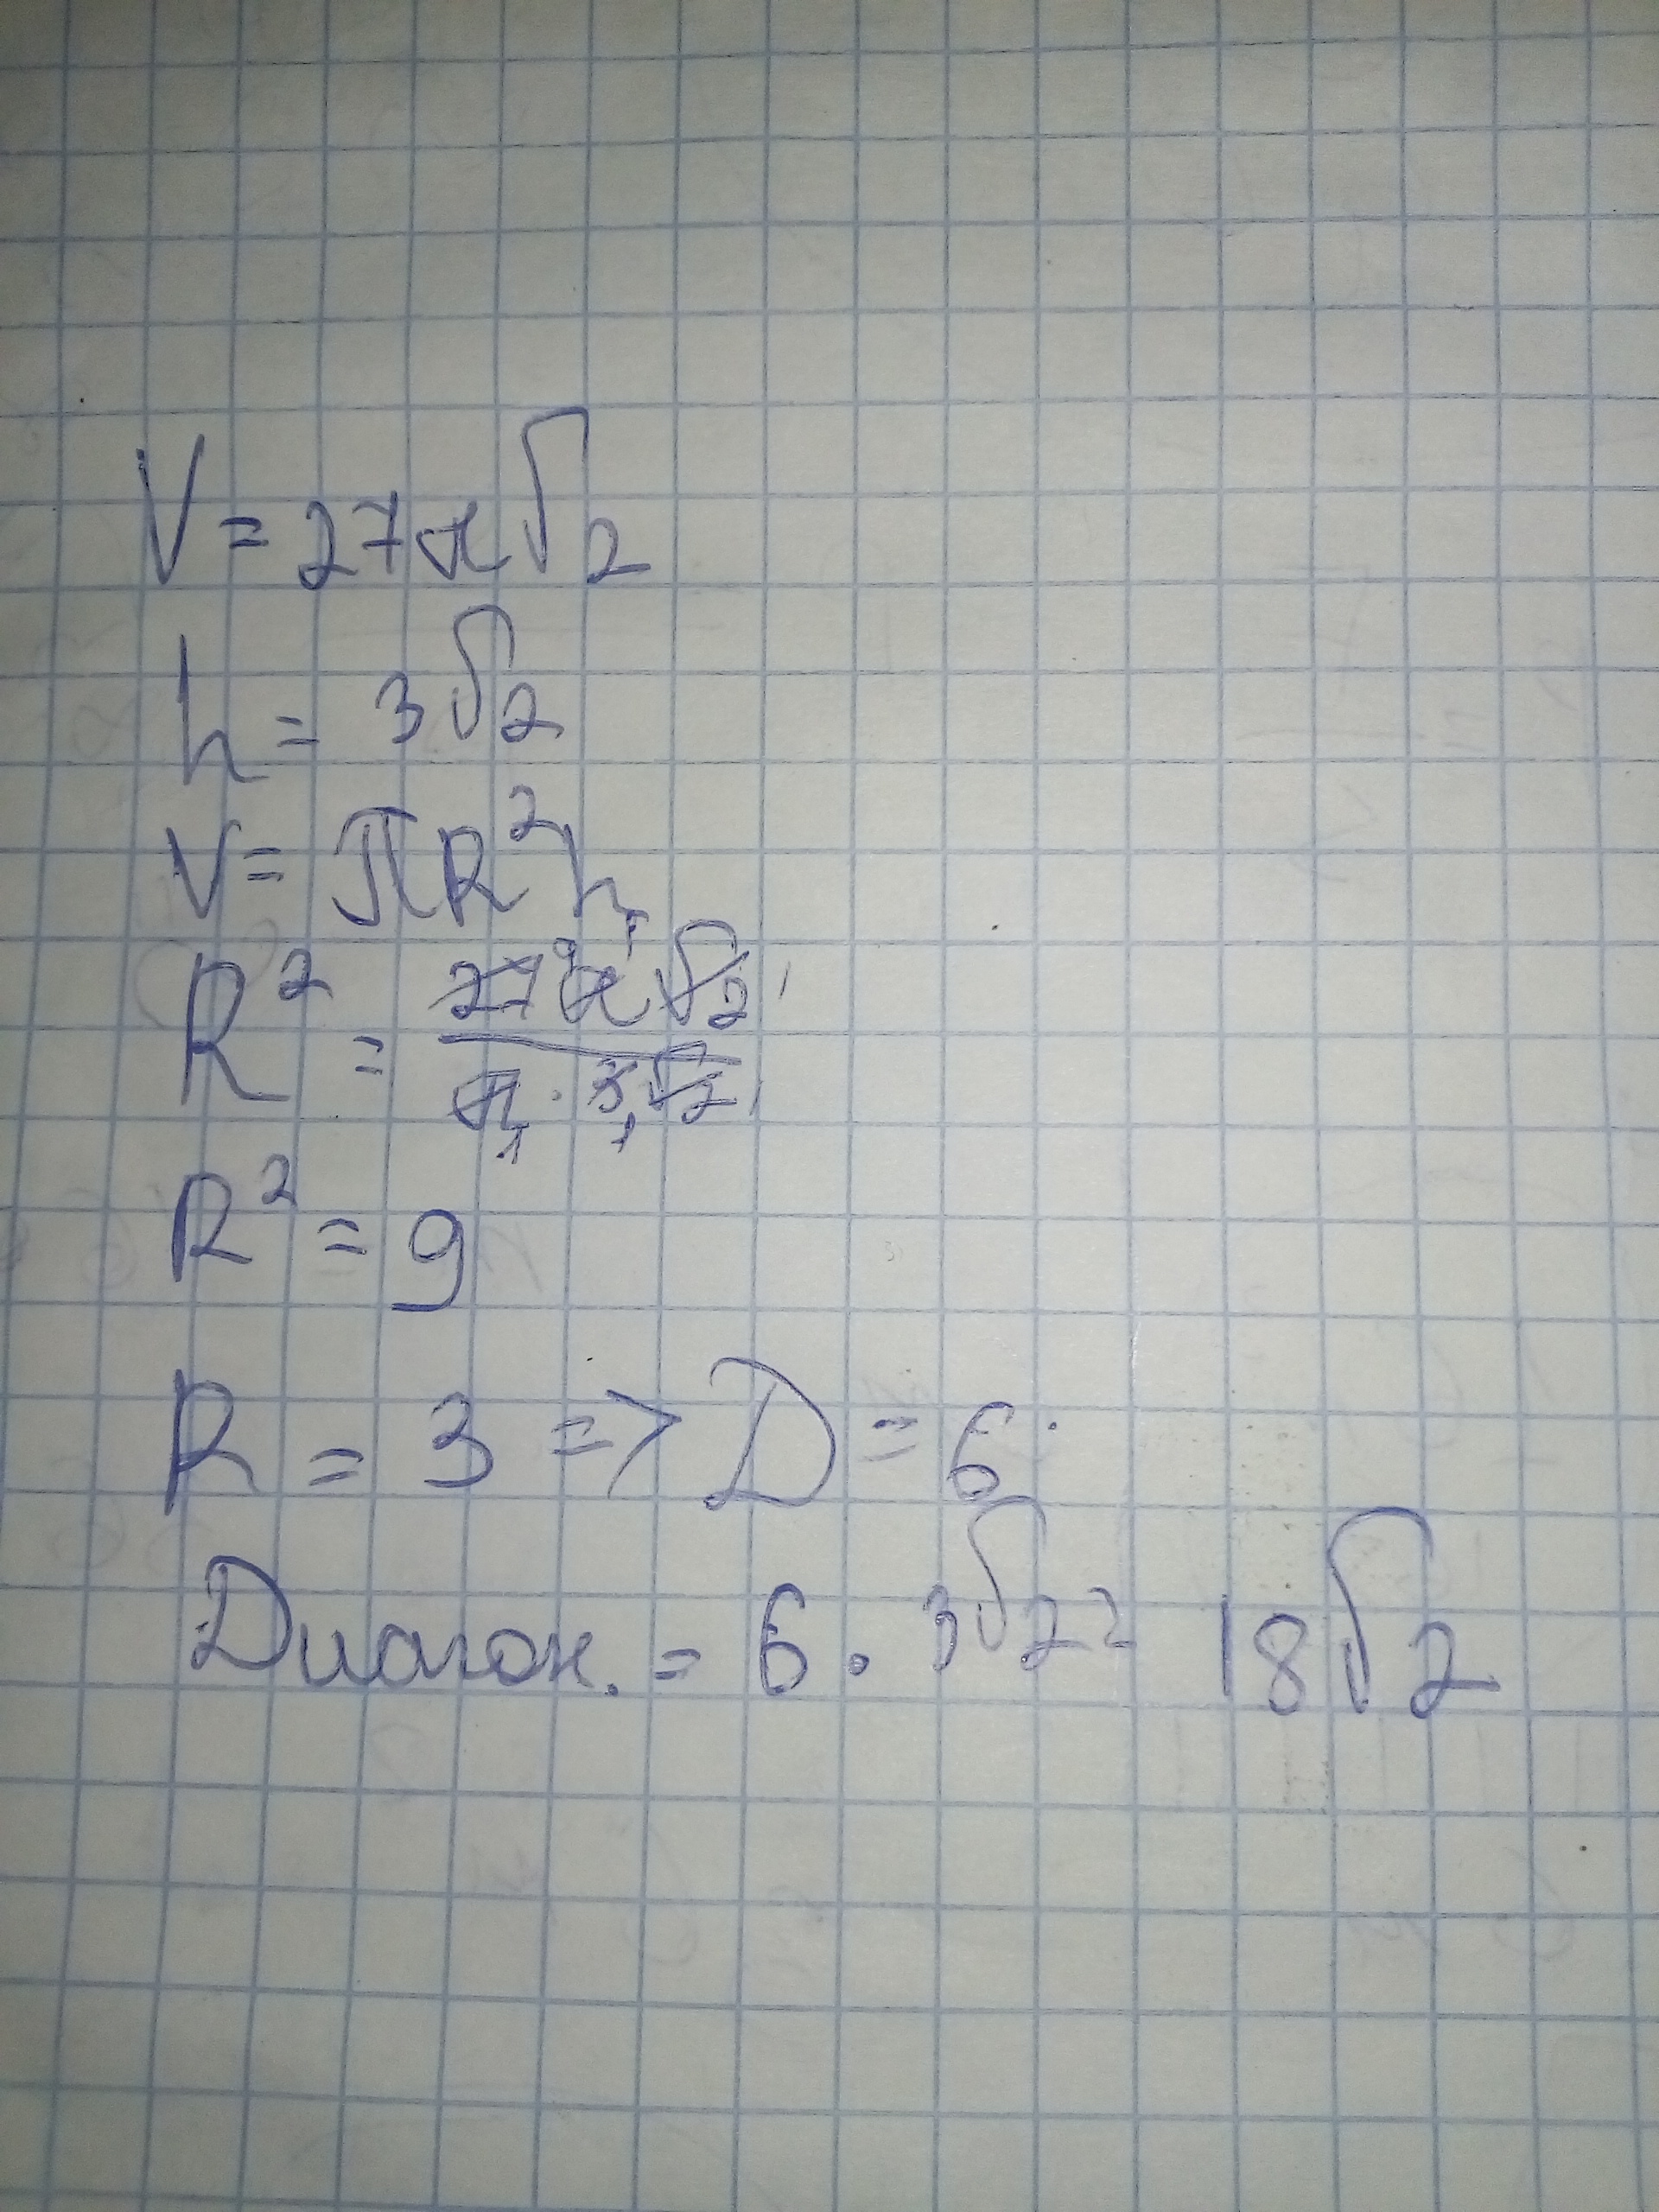 V = 27π√2
h = 3√2
V = πR²h
R² = 27π√2 / π · 3√2
R² = 9
R = 3 => D = 6
Диагон. = 6 · 3√2 = 18√2